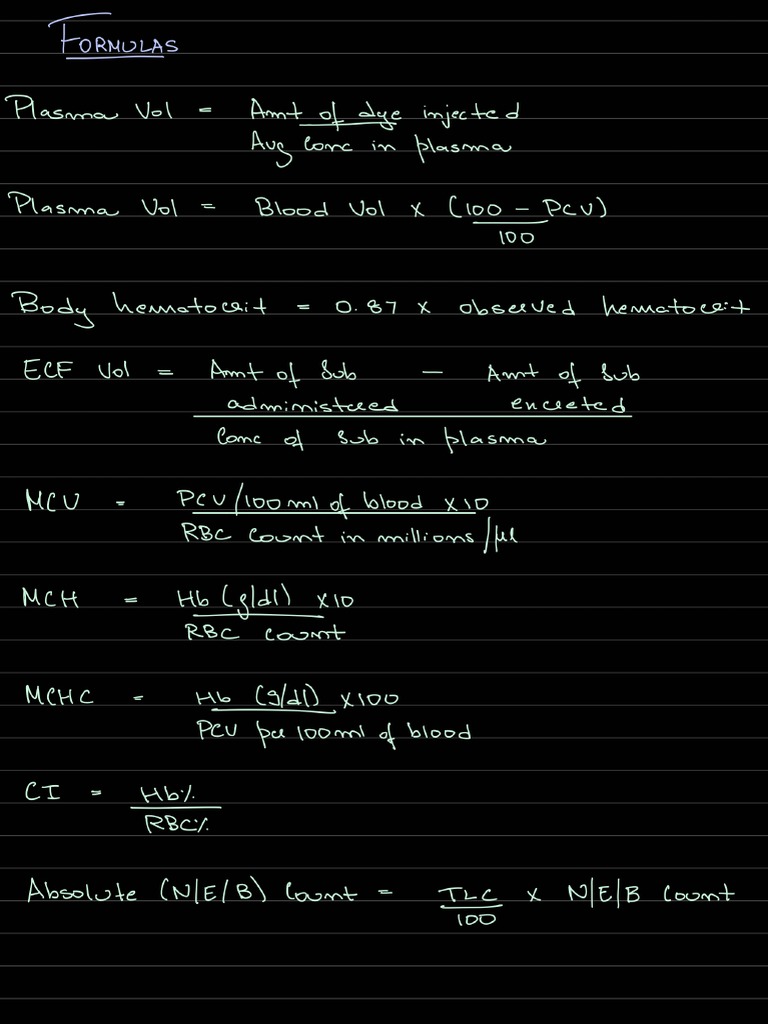 FORMULAS
Plasma Vol = Amt of dye injected
Avg Conc in plasma
Plasma Vol = Blood Vol x (100 - PCV)
100
Body hematocrit = 0.87 x observed hematocrit
ECF Vol = Amt of Sub - Amt of Sub
administered excreted
Conc of Sub in plasma
MCV = PCV/100 ml of blood x10
RBC Count in millions/μl
MCH = Hb (g/dl) x10
RBC Count
MCHC = Hb (g/dl) x100
PCV per 100ml of blood
CI = Hb%
RBC%
Absolute (N/E/B) Count = TLC x N/E/B Count
100